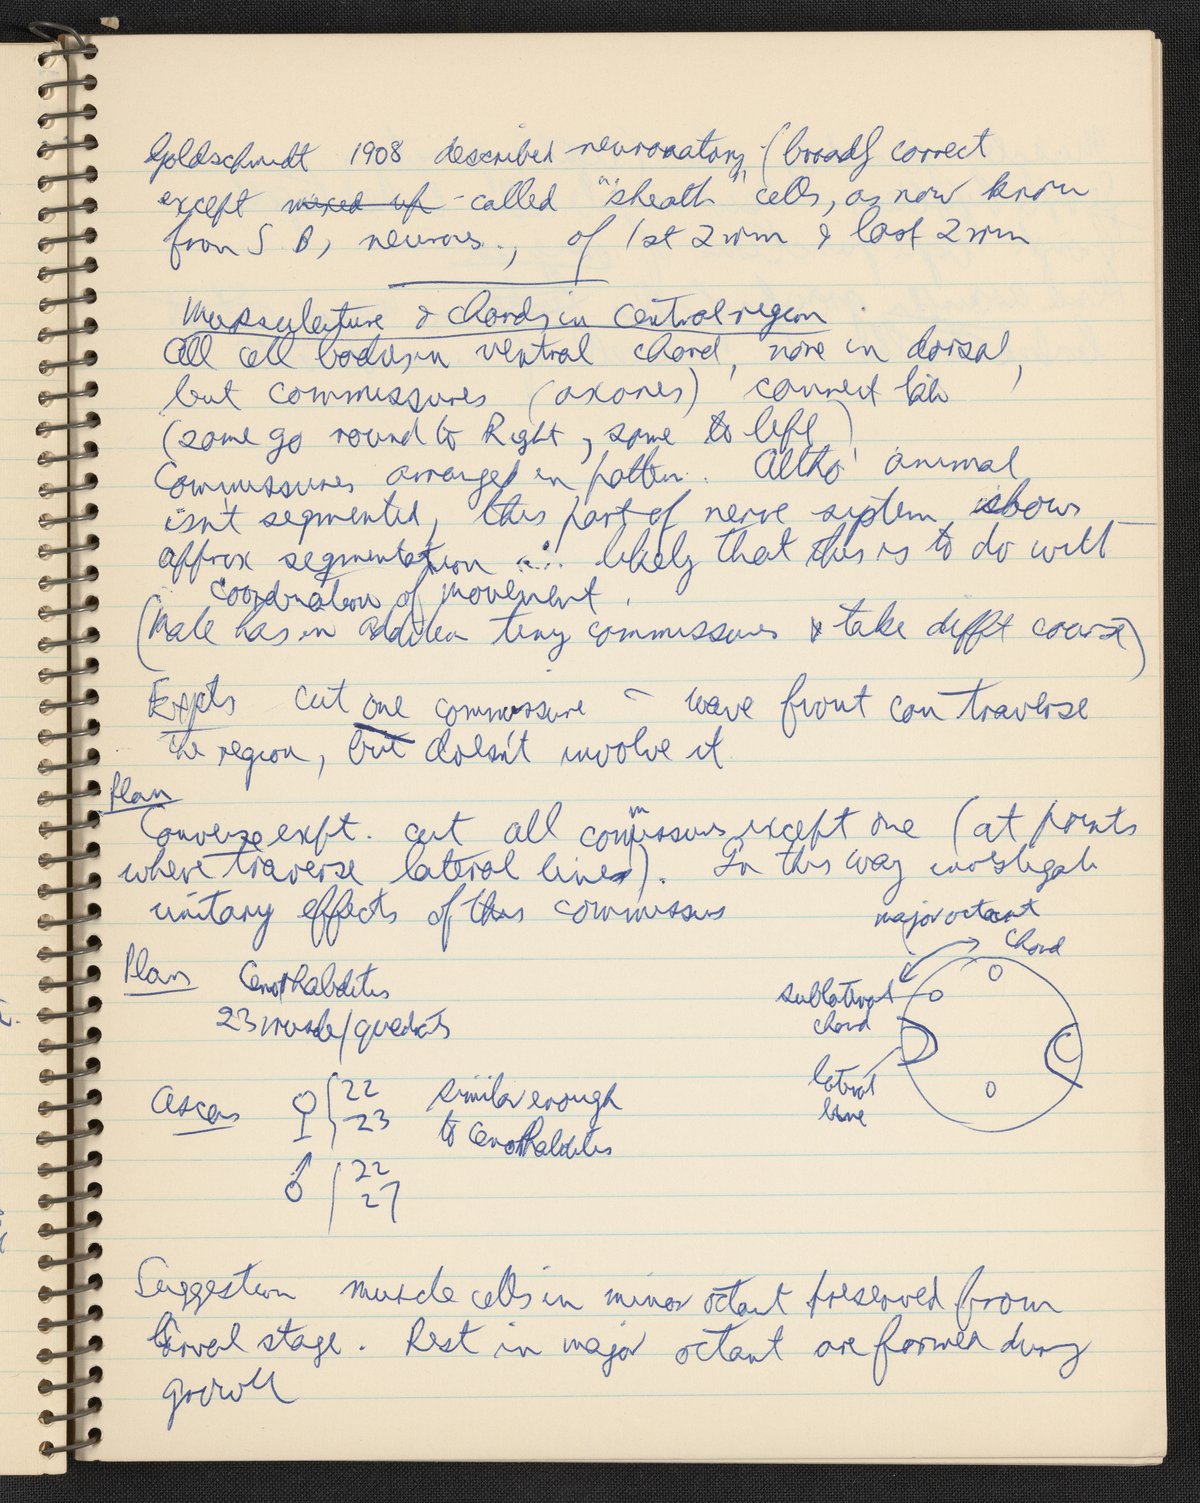 Goldschmidt 1908 described neuronatomy (broadly correct
except mixed up - called "sheath" cells, as now know
from S B, neurons., of 1st 2 mm & last 2 mm
Musculature & chords in central region
All cell bodies in ventral chord, none in dorsal,
but commissures (axones) connect
(some go round to Right, some to left)
Commissures arranged in pattern. Altho' animal
isn't segmented, this part of nerve system shows
approx segmentation ∴ likely that this is to do with
coordination of movement.
(Male has in addition tiny commissures & take diff't course)
Expts cut one commissure - wave front can traverse
the region, but doesn't involve it
Plan
Converse expt. cut all commissures except one (at points
where traverse lateral lines). In this way investigate
unitary effects of this commissures
major octant
chord
sublateral
chord
lateral
line
Plan Cenorhabditis
23 muscle/quadrats
Ascaris ♀ 22 similar enough
23 to Cenorhabditis
♂ 22
27
Suggestion muscle cells in minor octant preserved from
larval stage. Rest in major octant are formed during
growth